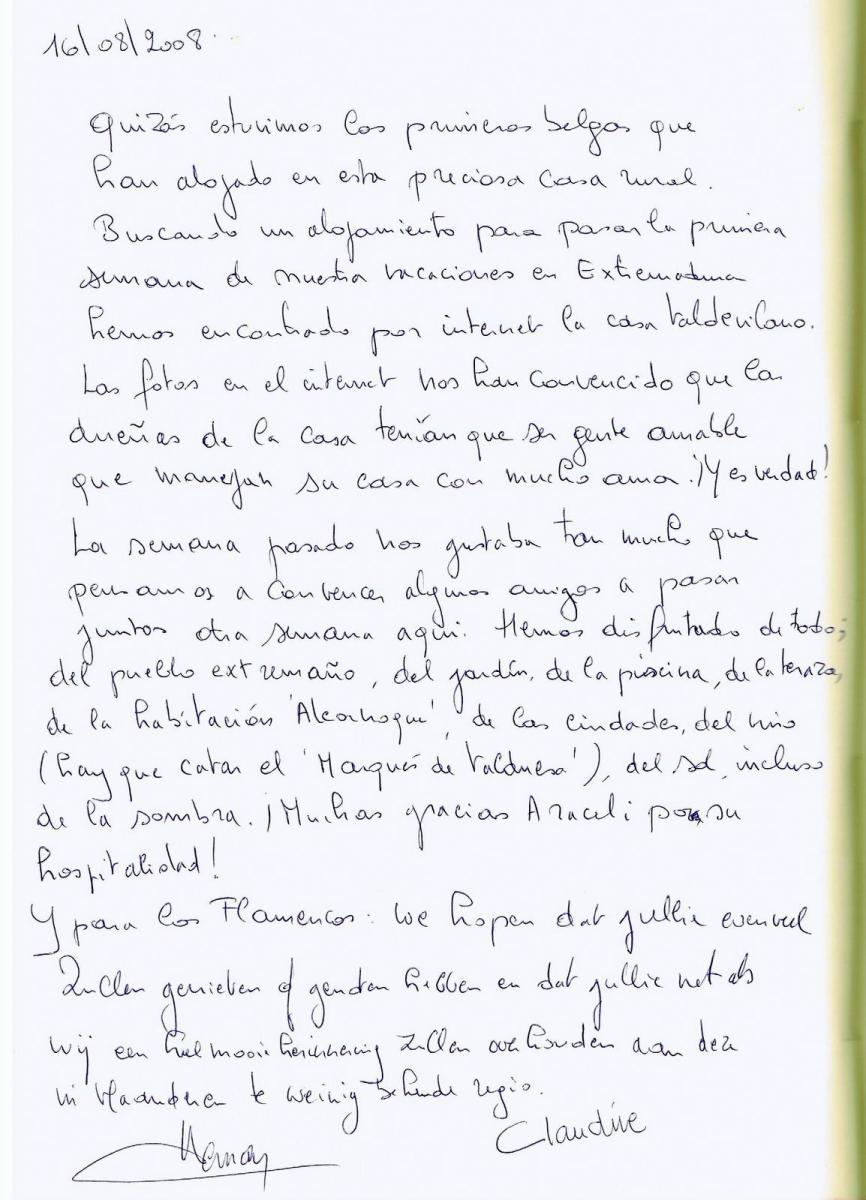 16/08/2008.
Quizás estuvimos los primeros belgas que
han alojado en esta preciosa casa rural.
Buscando un alojamiento para pasar la primera
semana de nuestra vacaciones en Extremadura
hemos encontrado por internet la casa Valdevilano.
Las fotos en el internet nos han convencido que las
dueñas de la casa tenían que ser gente amable
que manejan su casa con mucho amor. ¡Y es verdad!
La semana pasado nos gustaba tan mucho que
pensamos a convencer algunos amigos a pasar
juntos otra semana aquí. Hemos disfrutado de todo;
del pueblo extremaño, del jardín, de la piscina, de la teraza,
de la habitación 'Alcornoque', de las ciudades, del vino
(hay que catar el 'Marqués de Valdueza'), del sol, incluso
de la sombra. ¡Muchas gracias Araceli por su
hospitalidad!
Y para los Flamencos: we hopen dat jullie evenveel
zullen genieten of genoten hebben en dat jullie net als
wij een heel mooie herinnering zullen overhouden aan deze
in Vlaanderen te weinig bekende regio.
Claudine